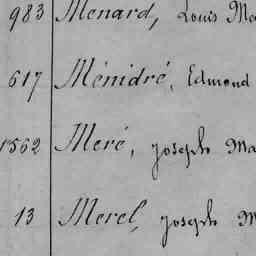 983 Menard, Louis Ma
617 Ménidré, Edmond
1562 Meré, Joseph Ma
13 Merel, Joseph M